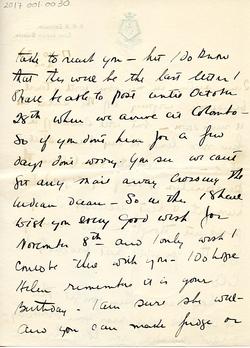 2017 001 0030
take to reach you – but I do know
that they will be the last letters I
shall be able to post until October
28th when we arrive at Colombo –
So if you don't hear for a few
days don't worry. You see we can't
get any mail away crossing the
Indian Ocean – So in this I shall
wish you every good wish for
November 8th and I only wish I
could be there with you – I do hope
Helen remembers it is your
Birthday. I am sure she will –
and you can make fudge or